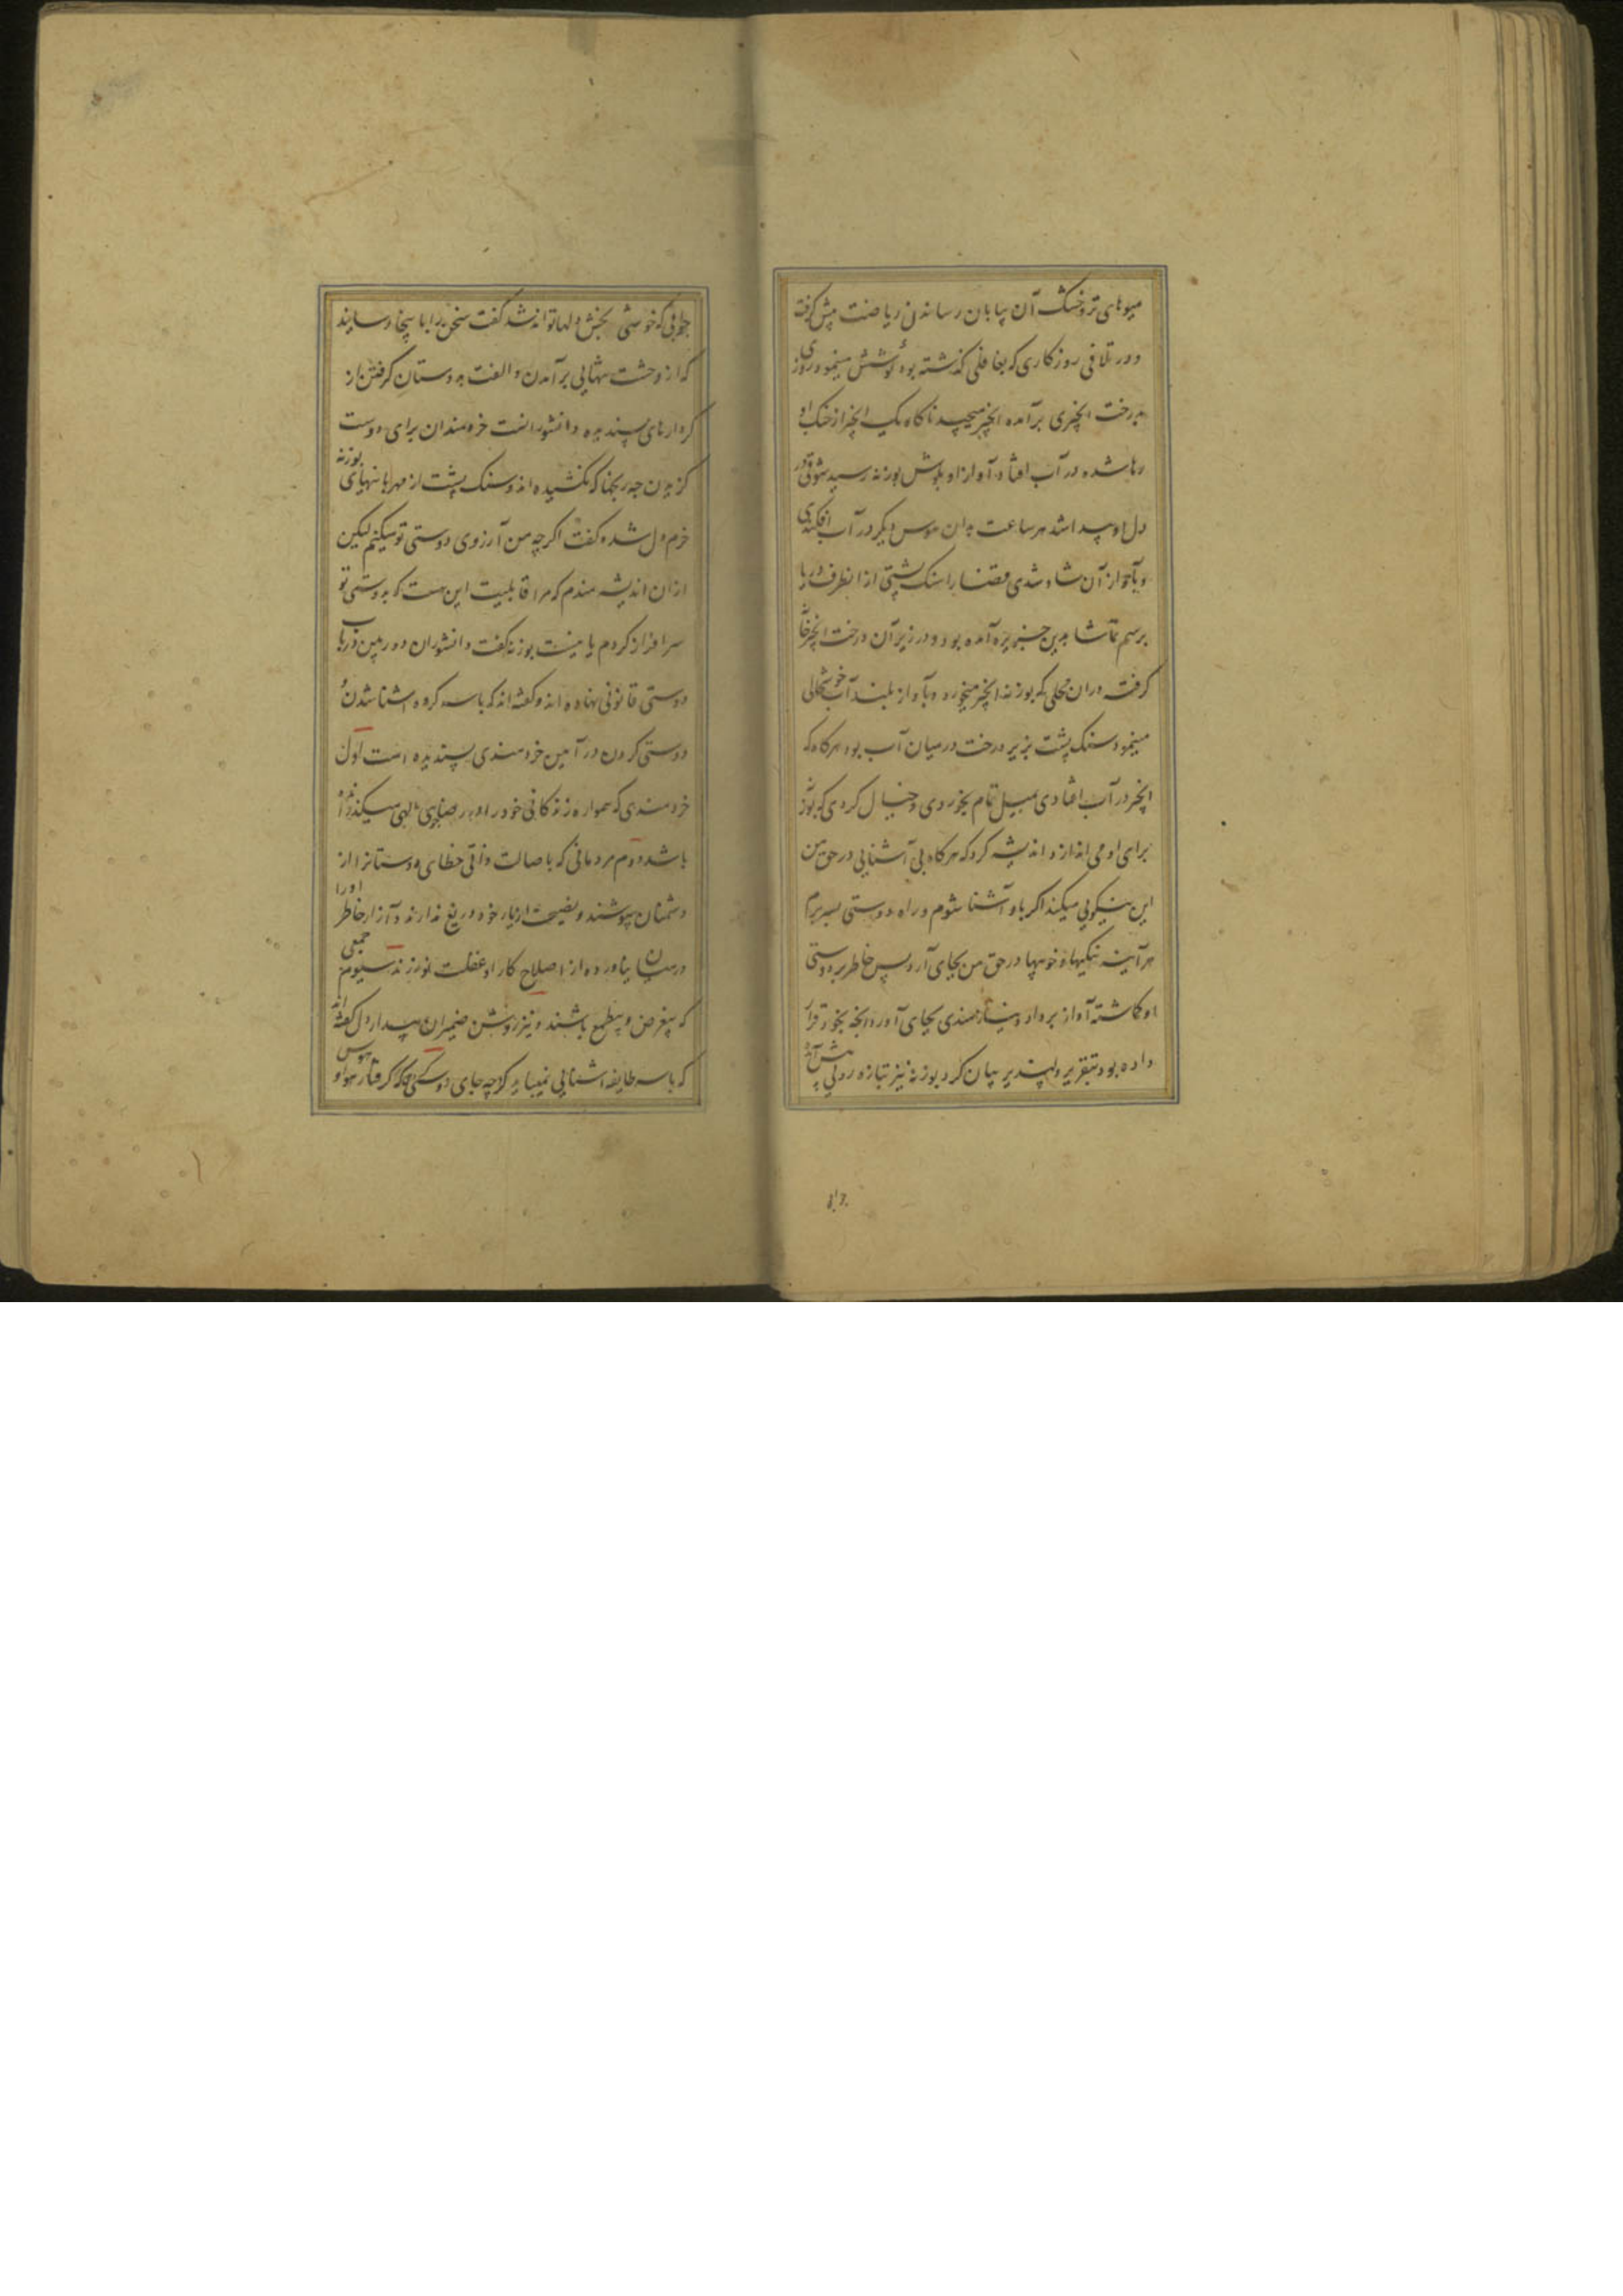 میوهای تر و خشک آن بیابان رسانه نی ریاضت پیش گرفته
و در تلافی روزکاری که بغافلی گذشته بود کوشش مینمود روزی
بدرخت انجیری برآمده انجیر میچید ناکاه یک انجیر از چنک او
رها شده در آب افتاد آواز او بکوش بوزنه رسید شوقی در
دل او پیدا شد هر ساعت بدان هوس دیکر در آب افکندی
و بآواز آن شاد شدی قضا را سنک پشتی از انطرف دریا
برسم تماشا بدین جزیره آمده بود و در زیر آن درخت انجیر خانه
کرفته دران محلی که بوزنه انجیر میخورد و بآواز بلند آب خوشحالی
مینمود سنک پشت بزیر درخت در میان آب بود هرکاه که
انجیر در آب افتادی بمیل تمام بخوردی و خیال کردی که بوزنه
برای او می اندازد اندیشه کرد که هرکاه بی آشنایی در حق من
این نیکویی میکند اکر باو آشنا شوم و راه دوستی بسر برم
هر آینه نیکیها و خوبیها در حق من بجای آرد پس خاطر بر دوستی
او کماشته آواز برداد و نیازمندی بجای آورد آنچه بخود قرار
داده بود بتقریر دلپذیر بیان کرد بوزنه نیز بتازه رویی پیش آمده
جوابی
جوابی که خوشی بخش دلها تواند شد کفت سخن را بدینجا رسانید
که از وحشت تنهایی برآمدن و الفت بدوستان کرفتن از
کردارهای پسندیده دانشورانست خردمندان برای دوست
کزیدن چه رنجها که نکشیده اند سنک پشت از مهربانیهای بوزنه
خرم دل شد و کفت اکرچه من آرزوی دوستی تو میکنم لیکن
ازان اندیشه مندم که مرا قابلیت این هست که بدوستی تو
سرافراز کردم یا نیست بوزنه کفت دانشوران دوربین در باب
دوستی قانونی نهاده اند و کفته اند که با سه کروه اشنا شدن و
دوستی کردن در آیین خردمندی پسندیده است اول
خردمندی که همواره زندکانی خود را در رضاجویی الهی میکذرانیده
باشد دوم مردمانی که باصالت ذاتی خطای دوستانرا از
دشمنان بپوشند و نصیحت از یار خود دریغ ندارند و آزار خاطر او را
در میان نیاورده از اصلاح کار او غفلت نورزند سیوم جمعی
که بیغرض و بیطمع باشند و نیز روشن ضمیران بیدار دل کفته اند
که با سه طایفه اشنایی نمیباید کرد چه جای دوستی یکی آنکه کرفتار هوا و هوس